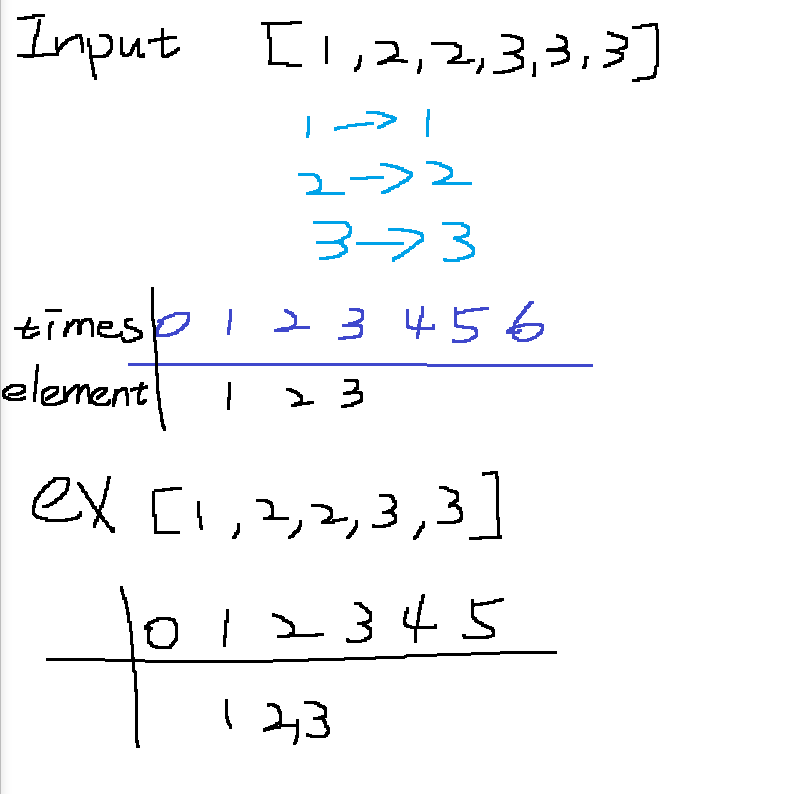 Input [1,2,2,3,3,3]
1 → 1
2 → 2
3 → 3
times 0 1 2 3 4 5 6
element 1 2 3
ex [1,2,2,3,3]
0 1 2 3 4 5
1 2,3